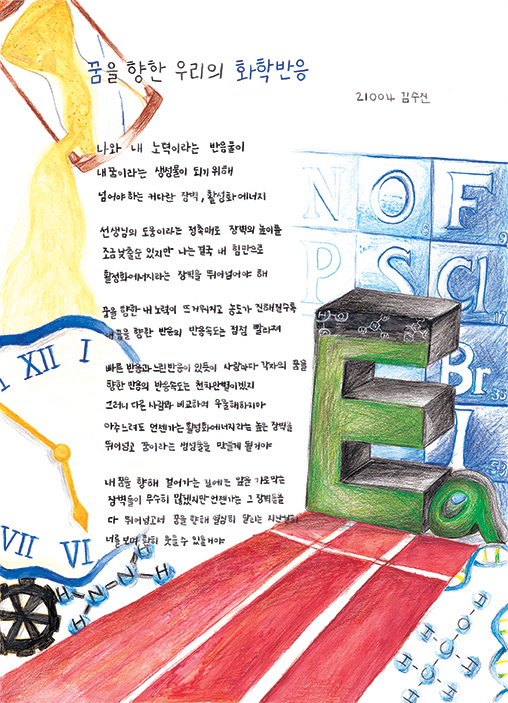 꿈을 향한 우리의 화학반응
21004 김수진
나와 내 노력이라는 반응물이
내 꿈이라는 생성물이 되기 위해
넘어야 하는 커다란 장벽, 활성화에너지
선생님의 도움이라는 정촉매로 장벽의 높이를
조금 낮출순 있지만 나는 결국 내 힘만으로
활성화에너지라는 장벽을 뛰어넘어야 해
꿈을 향한 내 노력이 뜨거워지고 농도가 진해질수록
내 꿈을 향한 반응의 반응속도는 점점 빨라져
빠른 반응과 느린반응이 있듯이 사람마다 각자의 꿈을
향한 반응의 반응속도는 천차만별이겠지
그러니 다른 사람과 비교하며 우울해하지마
아주 느려도 언젠가는 활성화에너지라는 높은 장벽을
뛰어넘고 꿈이라는 생성물을 만들게 될거야
내 꿈을 향해 걸어가는 길에는 앞을 가로막는
장벽들이 무수히 많겠지만 언젠가는 그 장벽들을
다 뛰어넘고서 꿈을 향해 열심히 달리는
너를 보며 환히 웃을 수 있을거야
N O F
P S Cl
Br
35
I
53
Ea
XII I
VII VI
H N N H
H H
H O H
H O H